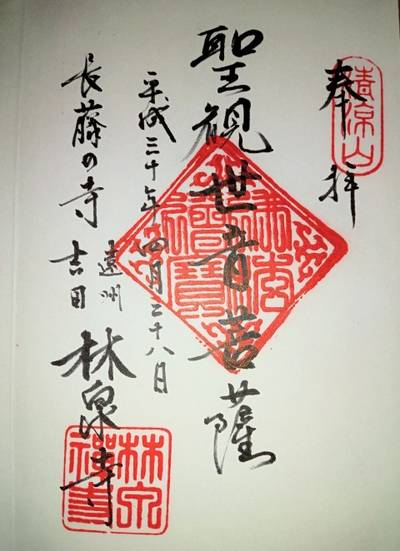 奉拝
清凉山
聖観世音菩薩
平成三十年四月二十八日
長藤の寺
遠州
吉田
林泉寺